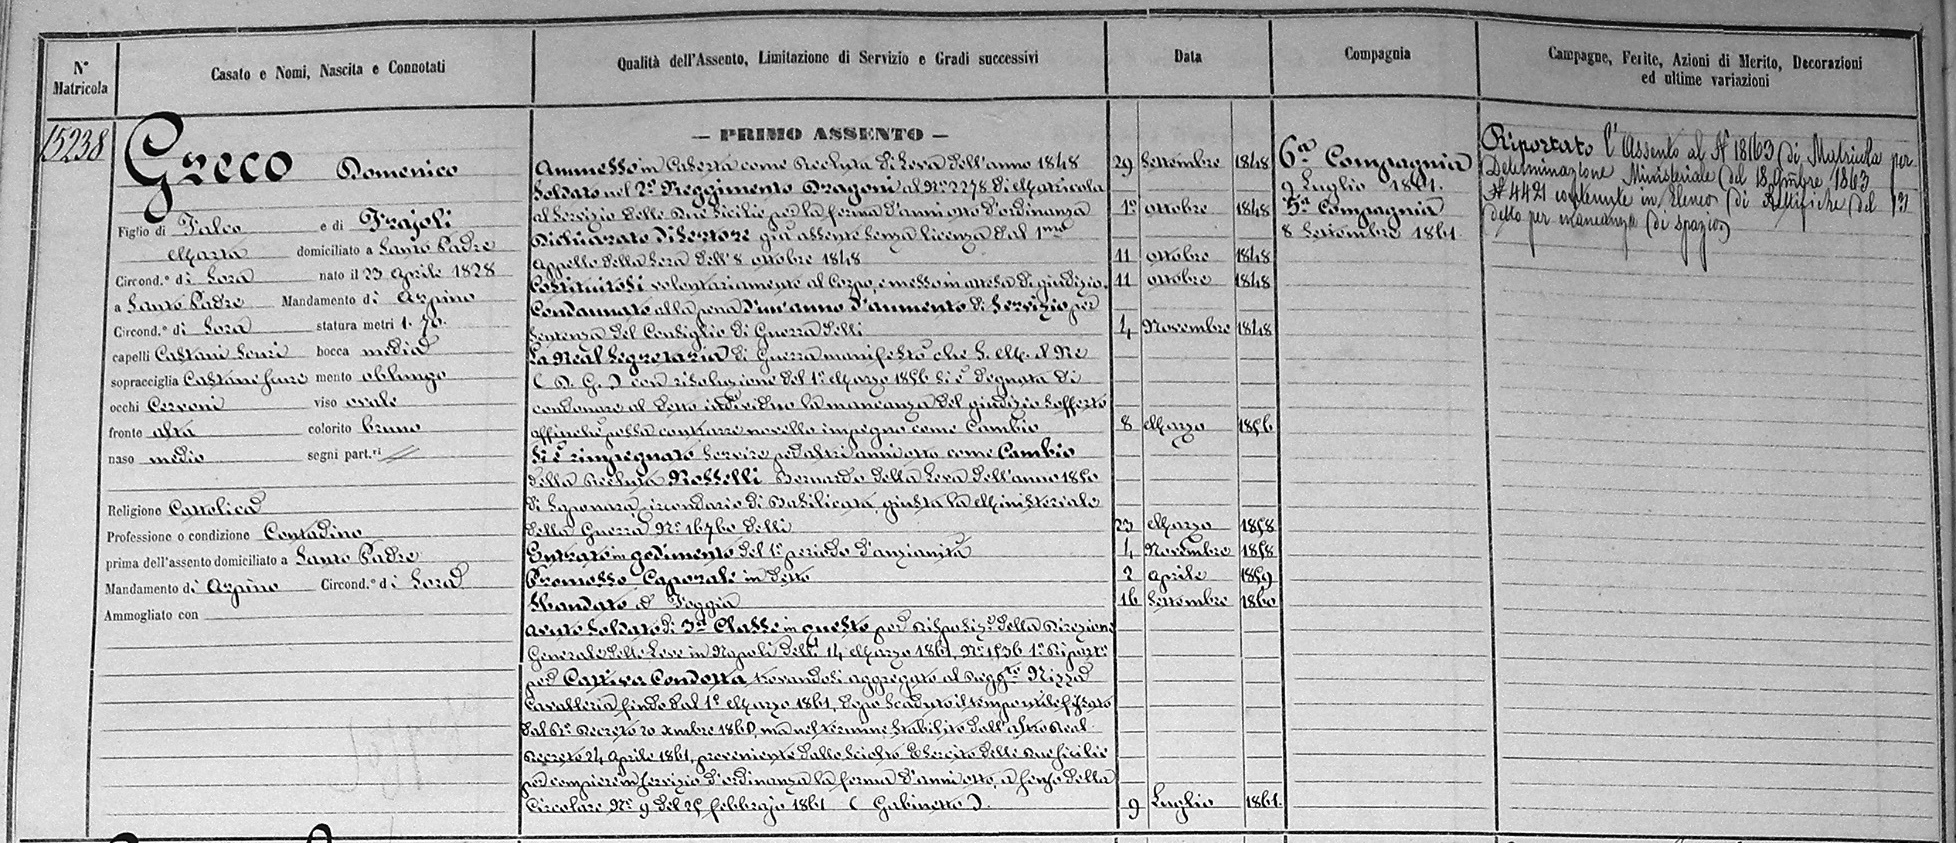 N° Matricola
Casato e Nomi, Nascita e Connotati
Qualità dell'Assento, Limitazione di Servizio e Gradi successivi
Data
Compagnia
Campagne, Ferite, Azioni di Merito, Decorazioni
ed ultime variazioni
15238
Greco Domenico
Figlio di Falco e di Frajoli
Marta domiciliato a Santo Padre
Circond.° di Sora nato il 23 Aprile 1828
a Santo Padre Mandamento di Arpino
Circond.° di Sora statura metri 1. 70.
capelli Castani scuri bocca media
sopracciglia Castane scure mento oblungo
occhi Cervoni viso ovale
fronte alta colorito bruno
naso medio segni part.ri
Religione Cattolica
Professione o condizione Contadino
prima dell'assento domiciliato a Santo Padre
Mandamento di Arpino Circond.° di Sora
Ammogliato con
— PRIMO ASSENTO —
Ammesso in Caserta come Recluta di Leva dell'anno 1848 29 Settembre 1848
Soldato nel 2° Reggimento Dragoni al N° 2278 di Matricola
al Servizio delle Due Sicilie per la ferma d'anni otto d'ordinanza 1° ottobre 1848
Dichiarato Disertore già assente senza licenza dal 1mo
Appello della Sera dell'8 ottobre 1848 11 ottobre 1848
Costituitosi volontariamente al Corpo, e messo in attesa di giudizio. 11 ottobre 1848
Condannato alla pena d'un'anno d'aumento di Servizio per
Sentenza del Consiglio di Guerra delli 4 Novembre 1848
La Real Segretaria di Guerra manifestò che S. M. il Re
(D. G.) con risoluzione del 1° Marzo 1856 si è degnata di
condonare al detto individuo la mancanza del giudizio sofferto
affinchè possa contrarre novello impegno come Cambio 8 Marzo 1856
Si è rimpegnato servire per altri anni otto come Cambio
della Recluta Rosselli Bernardo della Leva dell'anno 1850
di Saponara, circondario di Basilicata, giusta la Ministeriale
della Guerra N° 16760 delli 23 Marzo 1858
Entrato in godimento del 1° periodo d'anzianità 4 Novembre 1858
Promosso Caporale in detto 2 Aprile 1859
Sbandato a Foggia 16 Settembre 1860
Avuto Soldato di 3a Classe in questo per disposiz.e della Direzione
Generale delle Leve in Napoli delli 14 Marzo 1861, N° 1536 1° Riparto
per Cattiva Condotta trovandosi aggregato al Regg.to Nizza
Cavalleria fin dal 1° Marzo 1861, dopo scaduto il tempo utile fissato
dal R° Decreto 20 Xmbre 1860, ma nel termine stabilito dall'altro Real
Decreto 24 Aprile 1861, proveniente dallo sciolto Esercito delle Due Sicilie
per compiere in servizio d'ordinanza la ferma d'anni otto, a senso della
Circolare N° 9 del 25 febbrajo 1861 (Gabinetto). 9 Luglio 1861.
6a Compagnia
9 Luglio 1861.
5a Compagnia
8 Settembre 1861
Riportato l'Assento al N° 18163 di Matricola per
Determinazione Ministeriale del 18 1863
N° 4421 contenute in Elenco di Rettifiche del
detto per mancanza di spazio